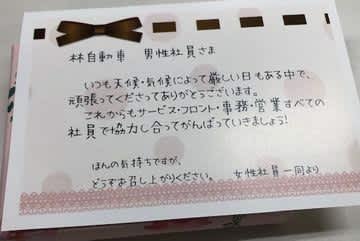 林自動車 男性社員さま
いつも天候・気候によって厳しい日もある中で、
頑張ってくださってありがとうございます。
これからもサービス・フロント・事務・営業すべての
社員で協力し合ってがんばっていきましょう!
ほんの気持ちですが、
どうぞお召し上がりください。 女性社員一同より